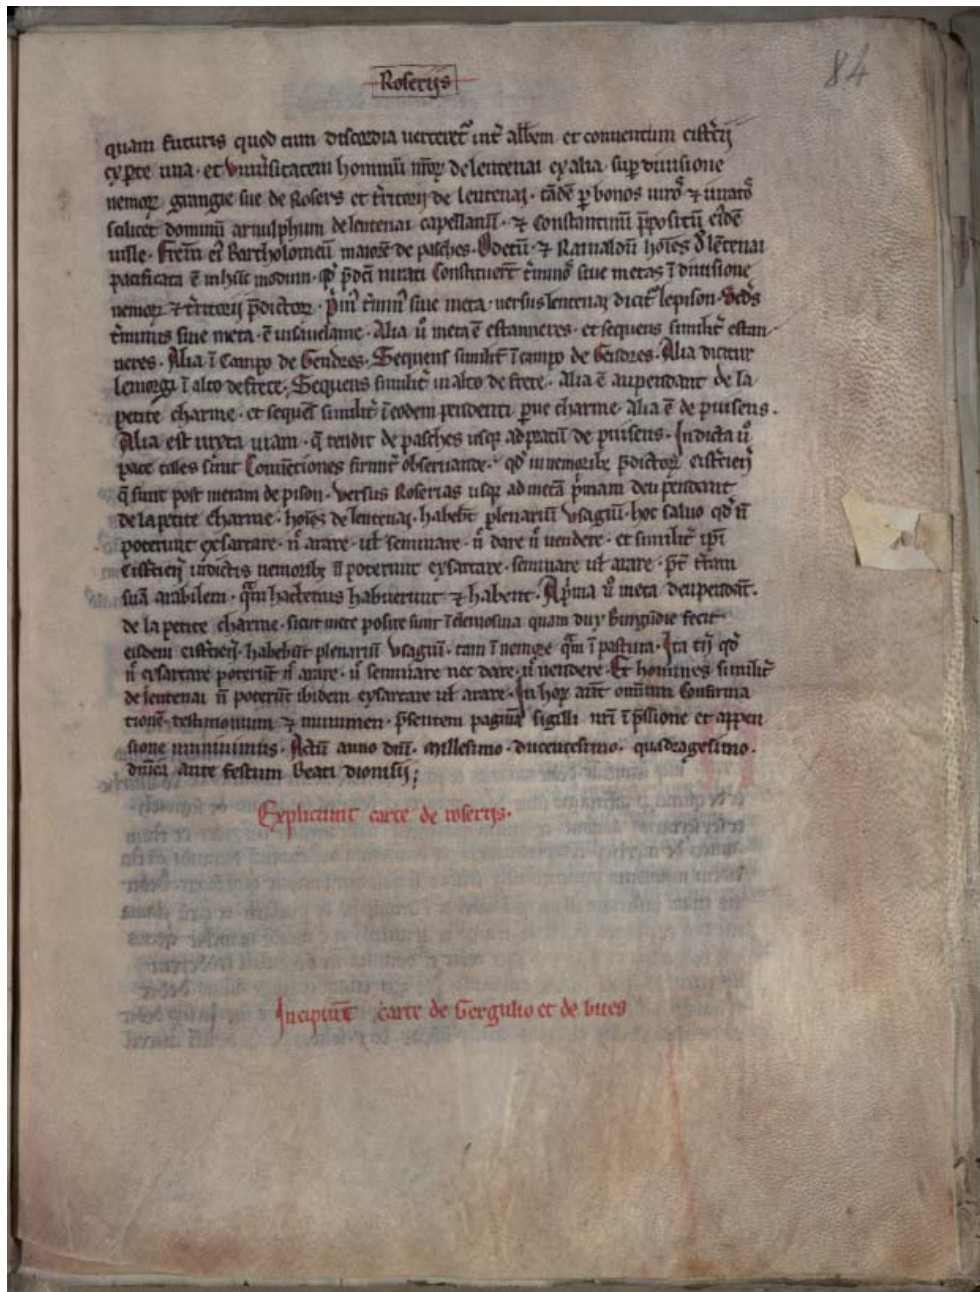 Roserijs
84
quam futuris quod cum discordia verteret᷑ int᷑ abb̄em et conuentum cist᷑cij
ex ꝑte una · et vniu᷑sitatem hominū nr̄oꝝ de lentenai ex alia · suꝑ diuisione
nemoꝝ grangie sue de Rosers et t᷑ritorij de lentenai · tādē ꝑ bonos uiros ⁊ iuratos
scilicet dominū arnulphum de lentenai capellanū · ⁊ Constantinū p̄positū eiꝰdē
uille · fr̄em eiꝰ Bartholomeū maiorē de pasches · Odetū · ⁊ Rainaldū hoīes d̄ lentenai
pacificata ē in hūc modum · qd̓ p̄dc̄i iurati Constituer̄t t᷑minos siue metas ī diuisione
nemoꝝ ⁊ t᷑ritorij p̄dictoꝝ · p̓mꝰ t᷑minꝰ siue meta · versus lentenai dicit᷑ le pison · Sc̄ds
t᷑minus siue meta · ē · Alia u̓ meta ē estanneres · et sequens similit᷑ estan-
neres · Alia ī Campo de Gendres · Sequens similit᷑ ī campo de Gendres · Alia dicitur
ī alto de frete · Sequens similit᷑ in alto de frete · alia ē au pendant de la
petite charme · et sequēs similit᷑ ī eodem pendenti ꝑue charme · alia ē de puisens ·
Alia est iuxta uiam · q̄ tendit de pasches usqꝫ ad pratū de puisens · In dicta u̓
pace tales sūnt Conuētiones firmit᷑ obseruande · qd̓ in nemoribꝫ p̄dictoꝝ cist᷑ciēsiū
q̄ sunt post metam de pison · versus Roserias usqꝫ ad metā p̓mam deu pendant
de la petite charme · hoīes de lentenai · habebt̄ plenariū vsagiū · hoc saluo qd̓ n̄
poterunt exsartare · n̄ arare · ul̄ seminare · n̄ dare n̄ vendere · et similit᷑ ip̄i
Cist᷑ciēs in dictis nemoribꝫ n̄ poterunt exsartare · seminare ul̄ arare · p̄t t᷑ram
suā arabilem · quā hactenus habuerunt ⁊ habent · A p̓ma u̓ meta deu pendāt ·
de la petite charme · sicut mete posite sunt ī elemosina quam dux burgūdie fecit
eisdem cist᷑ciēs · habebūt plenariū vsagiū · tam ī nemore quā ī pastura · Ita tn̄ qd̓
n̄ exsartare poterūt n̄ arare · n̄ seminare nec dare · n̄ vendere · Et homines similit᷑
de lentenai n̄ poterūt ibidem exsartare ul̄ arare · In hoꝝ aūt omnium Confirma
tionē testimonium ⁊ munimen · p̄sentem paginā sigilli nr̄i īp̄ssione et appen
sione muniuimus · Actū anno dnī · Millesimo · ducentesimo · quadragesimo ·
dn̄ica ante festum beati dionisij ;
Expliciunt carte de roserijs ·
Incipiūt carte de Gergulio et de bues